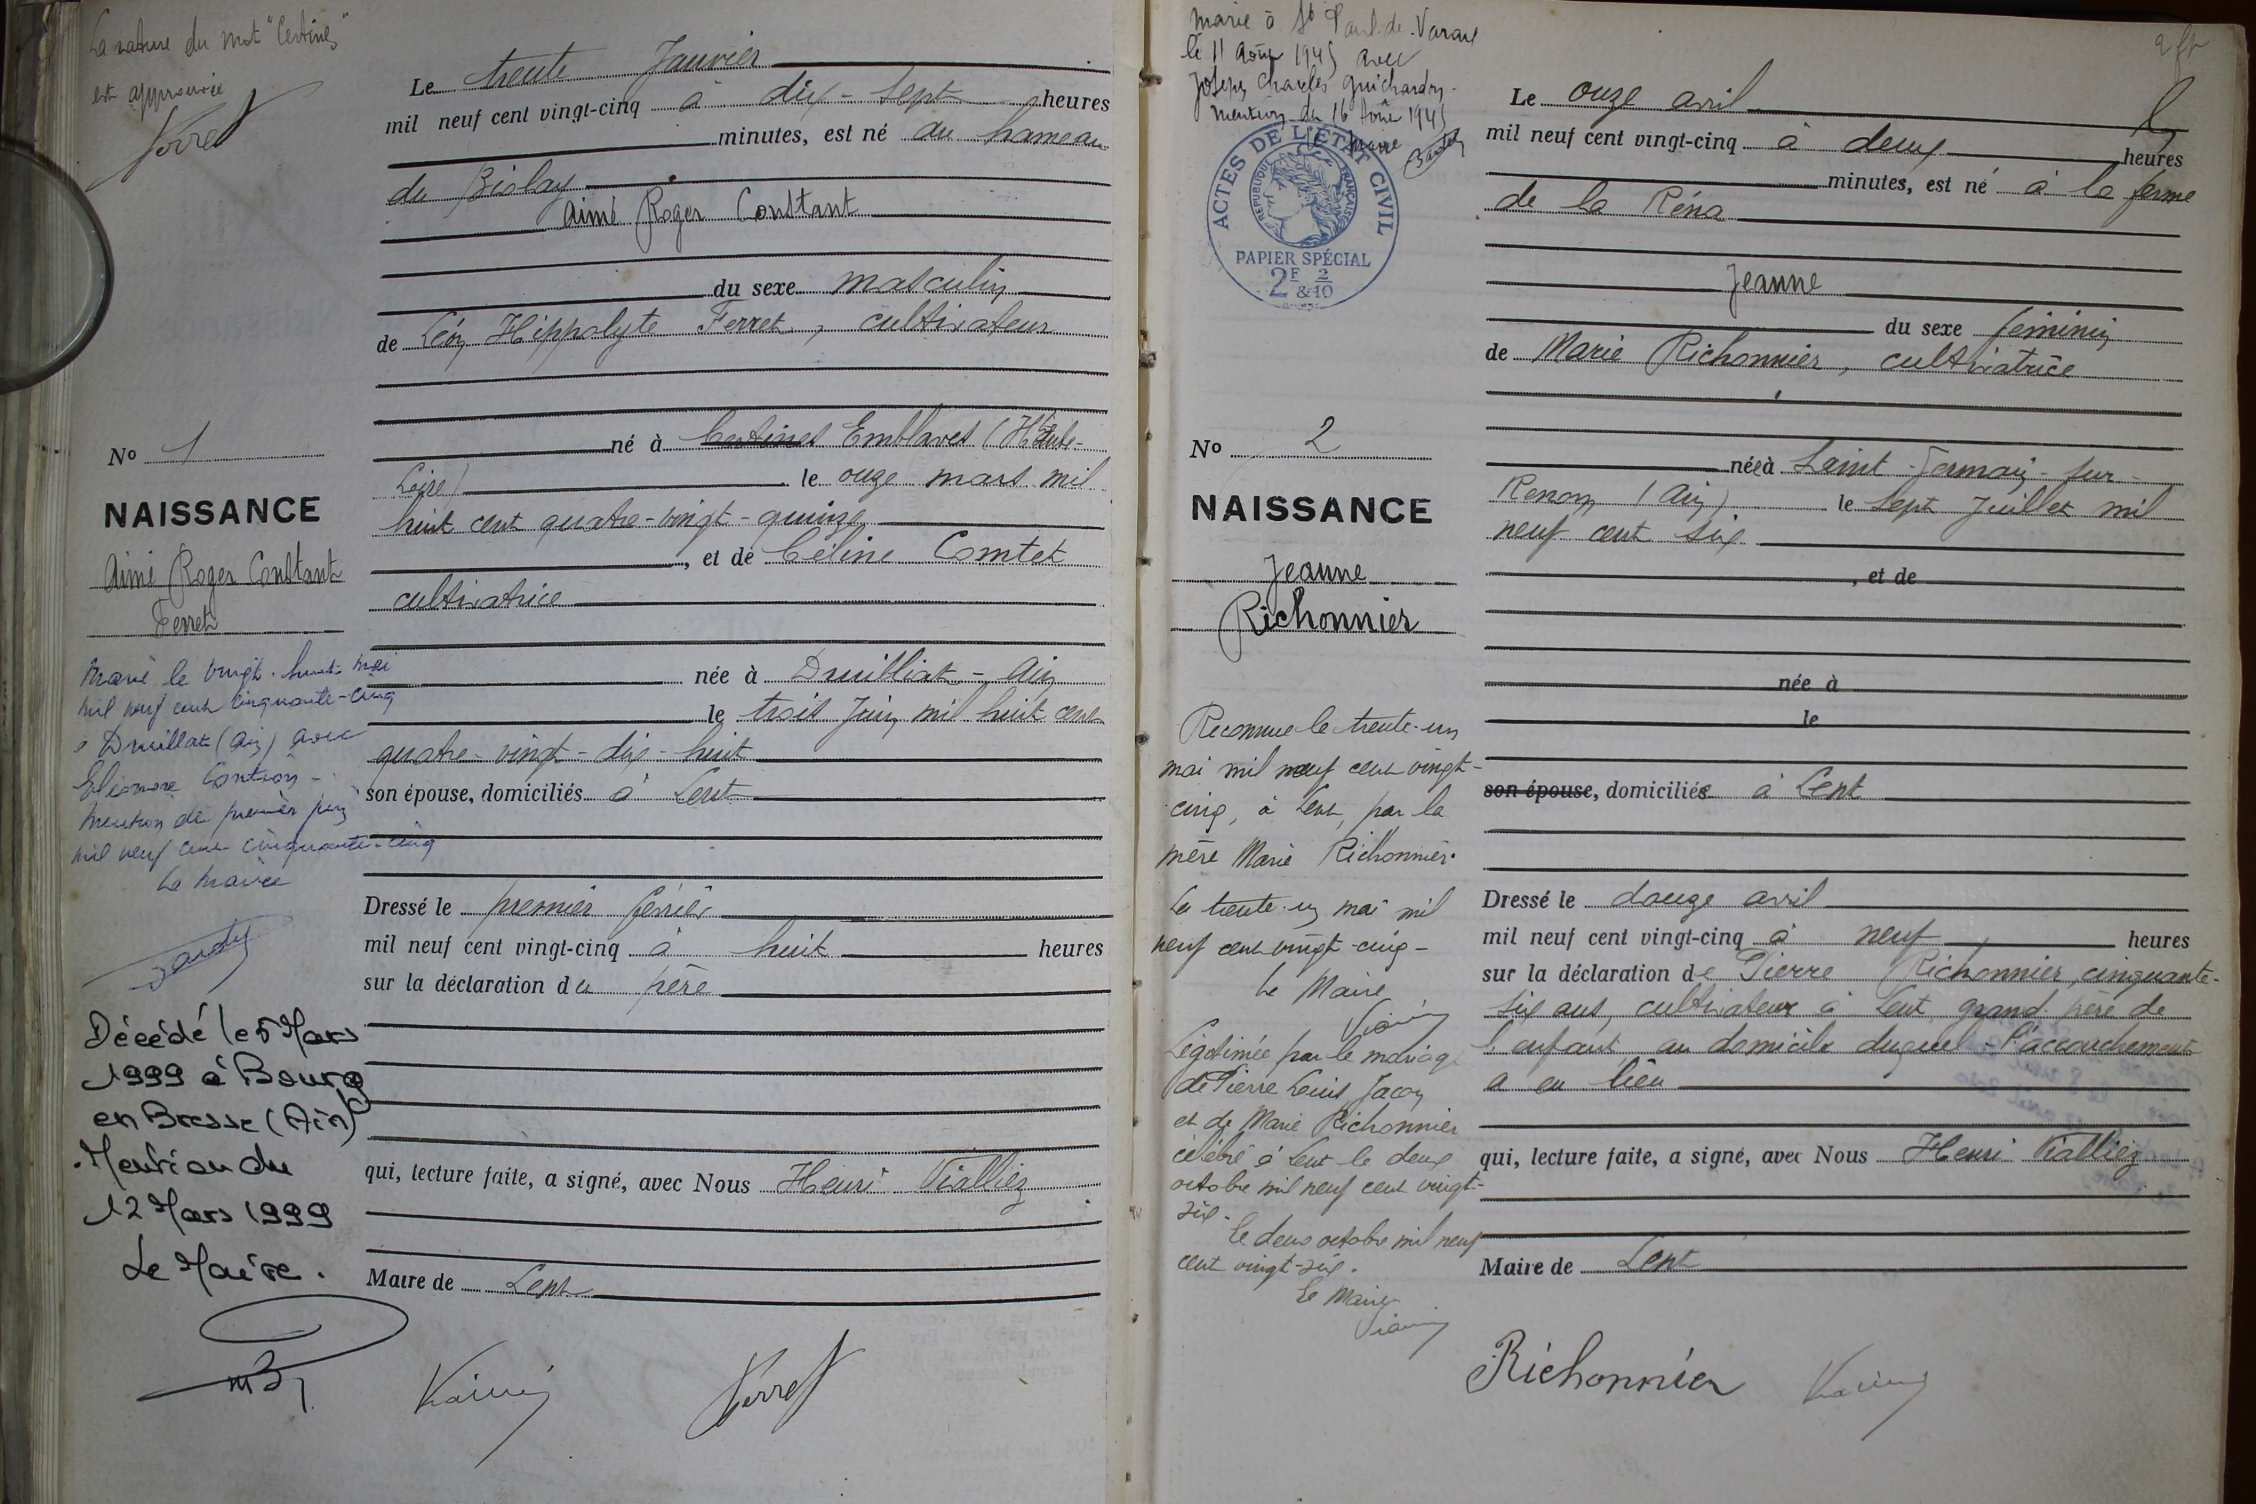 La rature du mot "Certines"
est approuvée
Ferret
Le trente Janvier
mil neuf cent vingt-cinq à dix-sept heures
minutes, est né au hameau
du Biolay
Aimé Roger Constant
du sexe masculin
de Léon Hippolyte Ferret, cultivateur
né à Certines Emblaves (Haute-
Loire) le onze mars mil
huit cent quatre-vingt-quinze
, et de Céline Comtet
cultivatrice
née à Druillat - Ain
le trois Juin mil huit cent
quatre-vingt-dix-huit
son épouse, domiciliés à Lent
Dressé le premier février
mil neuf cent vingt-cinq à huit heures
sur la déclaration du père
qui, lecture faite, a signé, avec Nous Henri
Maire de Lent
Ferret
No 1
NAISSANCE
Aimé Roger Constant
Ferret
Marié le vingt-huit mai
mil neuf cent cinquante-cinq
à Druillat (Ain) avec
Eléonore
Mention du premier juin
mil neuf cent cinquante-cinq
Le Maire
Décédé le 5 Mars
1999 à Bourg
en Bresse (Ain)
Mention du
12 Mars 1999
Le Maire.
Marié à St Paul-de-Varax
le 11 Août 1945 avec
Joseph Charles Guichardon
Mention du 16 Août 1945
Le Maire
ACTES DE L'ÉTAT CIVIL
RÉPUBLIQUE FRANÇAISE
PAPIER SPÉCIAL
2F & 2/10
No 2
NAISSANCE
Jeanne
Richonnier
Reconnue le trente-un
mai mil neuf cent vingt-
cinq, à Lent, par la
mère Marie Richonnier.
Le trente-un mai mil
neuf cent vingt-cinq -
Le Maire
Légitimée par le mariage
de Pierre Louis Jacon
et de Marie Richonnier
célébré à Lent le deux
octobre mil neuf cent vingt-
six.
Le deux octobre mil neuf
cent vingt-six.
Le Maire
Le onze avril
mil neuf cent vingt-cinq à deux heures
minutes, est né à la ferme
de la Réna
Jeanne
du sexe féminin
de Marie Richonnier, cultivatrice
née à Saint-Germain-sur-
Renon (Ain) le sept Juillet mil
neuf cent six
, et de
née à
le
son épouse, domiciliée à Lent
Dressé le douze avril
mil neuf cent vingt-cinq à neuf heures
sur la déclaration de Pierre Richonnier, cinquante-
six ans, cultivateur à Lent, grand père de
l'enfant au domicile duquel l'accouchement
a eu lieu
qui, lecture faite, a signé, avec Nous Henri
Maire de Lent
Richonnier